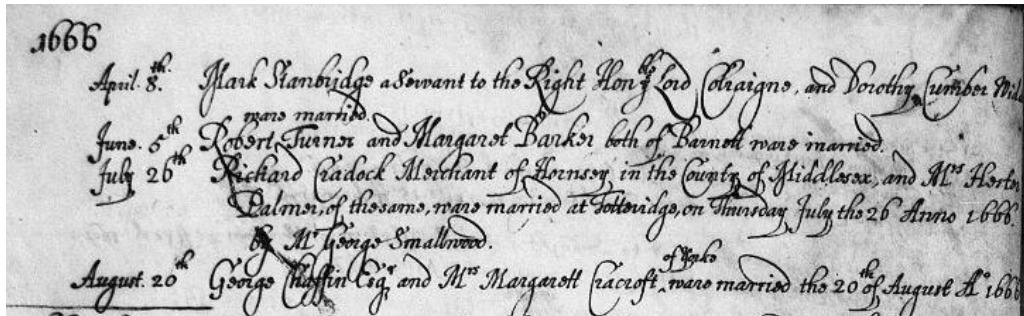 1666
April. 8th. Mark Stanbridge a Servant to the Right Honble ye Lord Colraigne, and Dorothy Cumber Wid
ware married.
June. 5th Robert Turner and Margaret Barker both of Barnett ware married.
July 26th Richard Cradock Merchant of Hornsey in the County of Middlesex, and Mrs Hester
Palmer, of the same, ware married at Totteridge, on Thursday July the 26 Anno 1666.
by Mr George Smallwood.
August. 20th George Chaffin Esqr, and Mrs Margarett Cracroft, of Yorke ware married the 20th of August Ao 1666